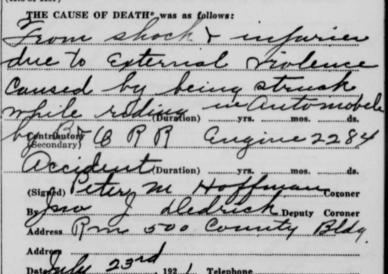 THE CAUSE OF DEATH* was as follows:
From shock & injuries
due to External Violence
Caused by being struck
while riding in Automobile
(Duration) yrs. mos. ds.
by B & O R R Engine 2284
Contributory
(Secondary)
Accident (Duration) yrs. mos. ds.
(Signed) Peter M Hoffman Coroner
By Jno J Dedrick Deputy Coroner
Address Rm 500 County Bldg.
Address
Date July 23rd 192 Telephone